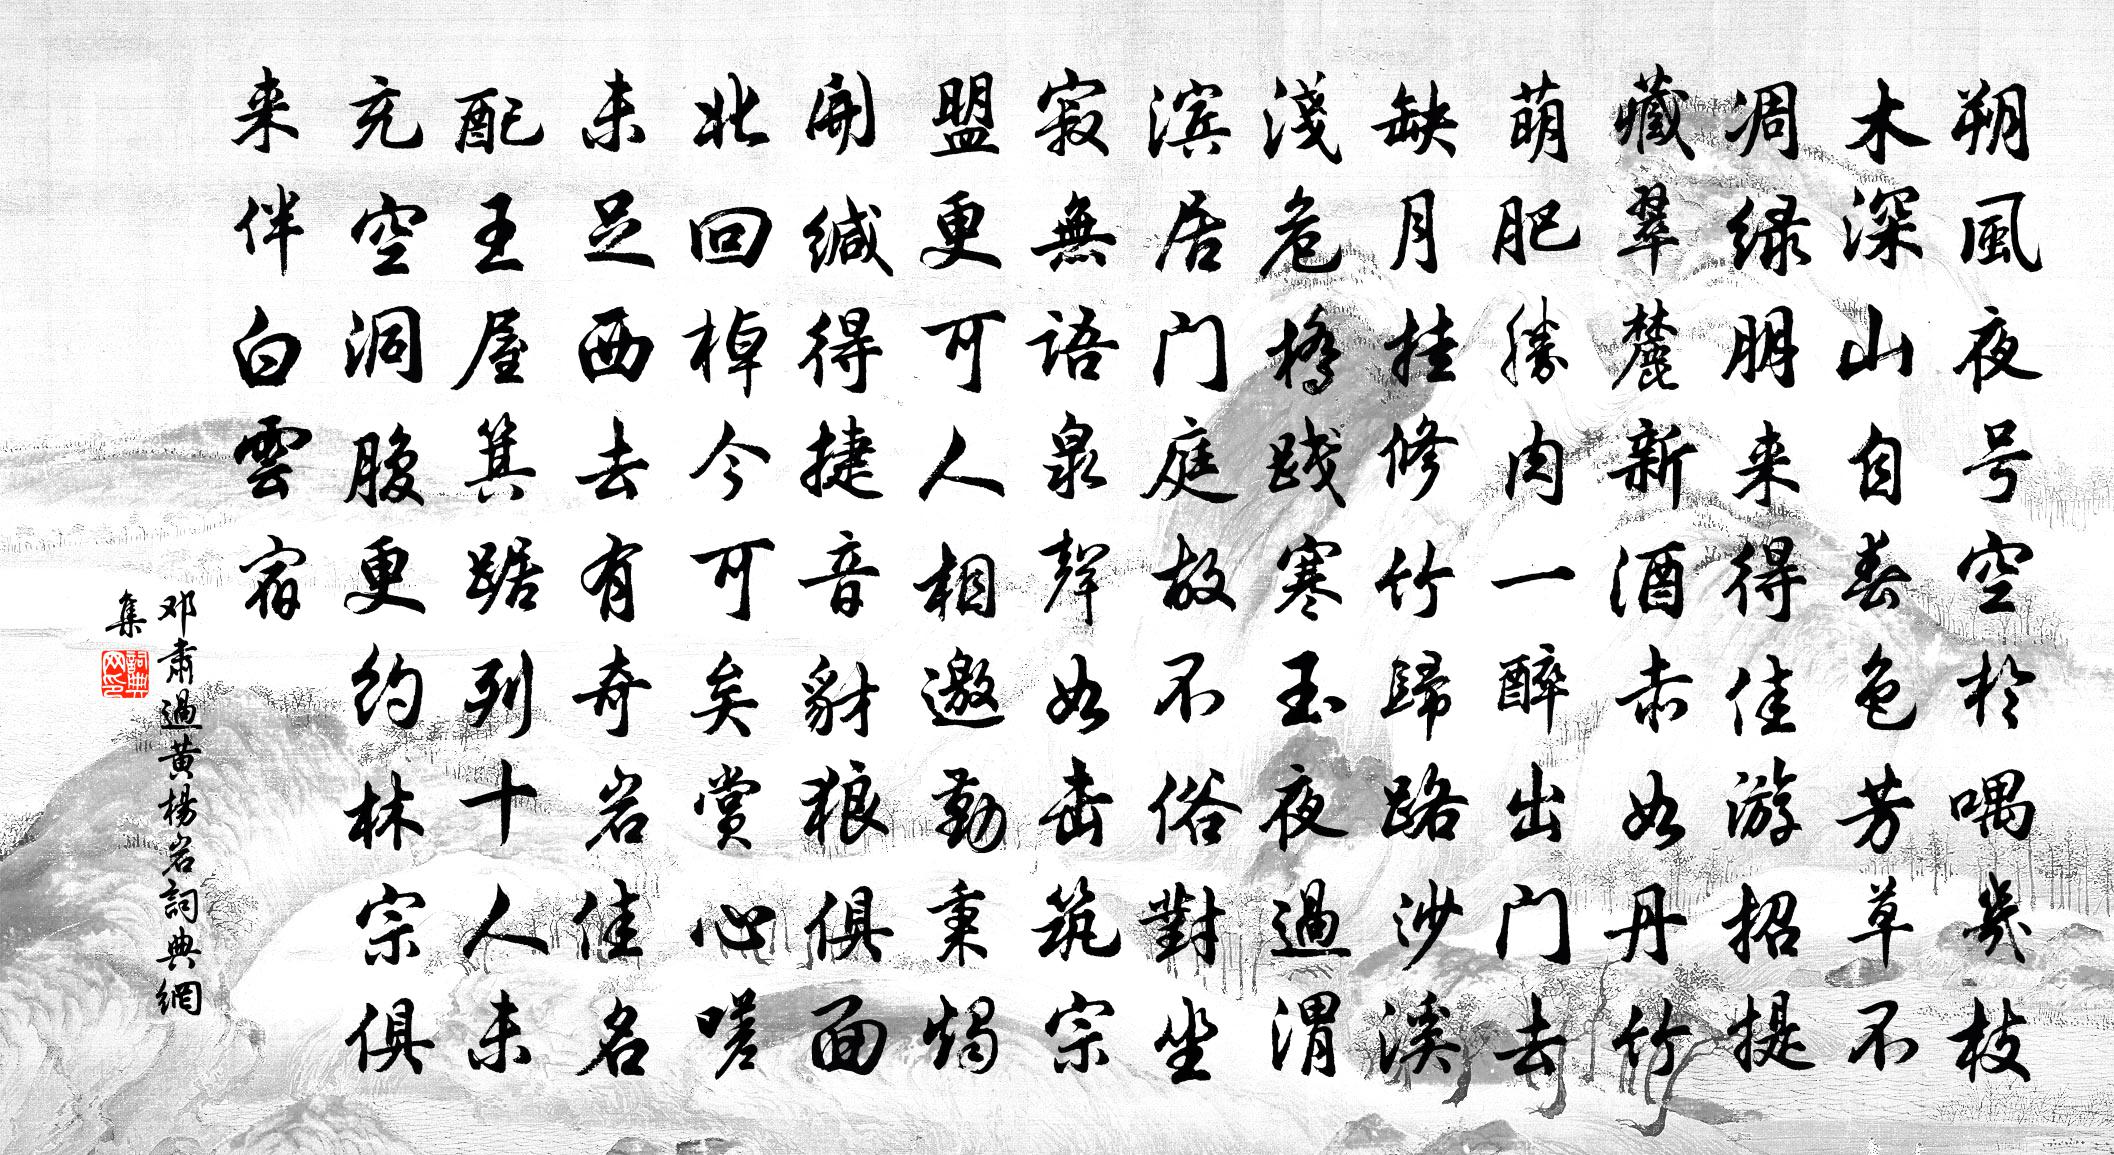 朔風夜号空於喁幾枝
木深山自春色芳草不
凋绿朋来得佳游招提
藏翠麓新酒赤如丹竹
萌肥勝肉一醉出门去
缺月挂修竹歸路沙溪
淺危橋踐寒玉夜過渭
滨居门庭故不俗對坐
寂無語泉聲如击筑宗
盟更可人相邀勤秉燭
開缄得捷音豺狼俱面
北回棹今可矣赏心嗟
未足西去有奇岩佳名
配王屋箕踞列十人未
充空洞腹更约林宗俱
来伴白雲宿
邓肃過黄楊岩詞典網
集
詞典网印